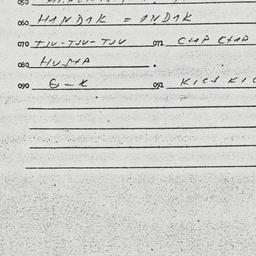 060 HANDAK = ANDAK
070 TJU-TJU-TJU 071 CHAP CHAP
080 HUSTA
090 G-K 091 KICL KIC